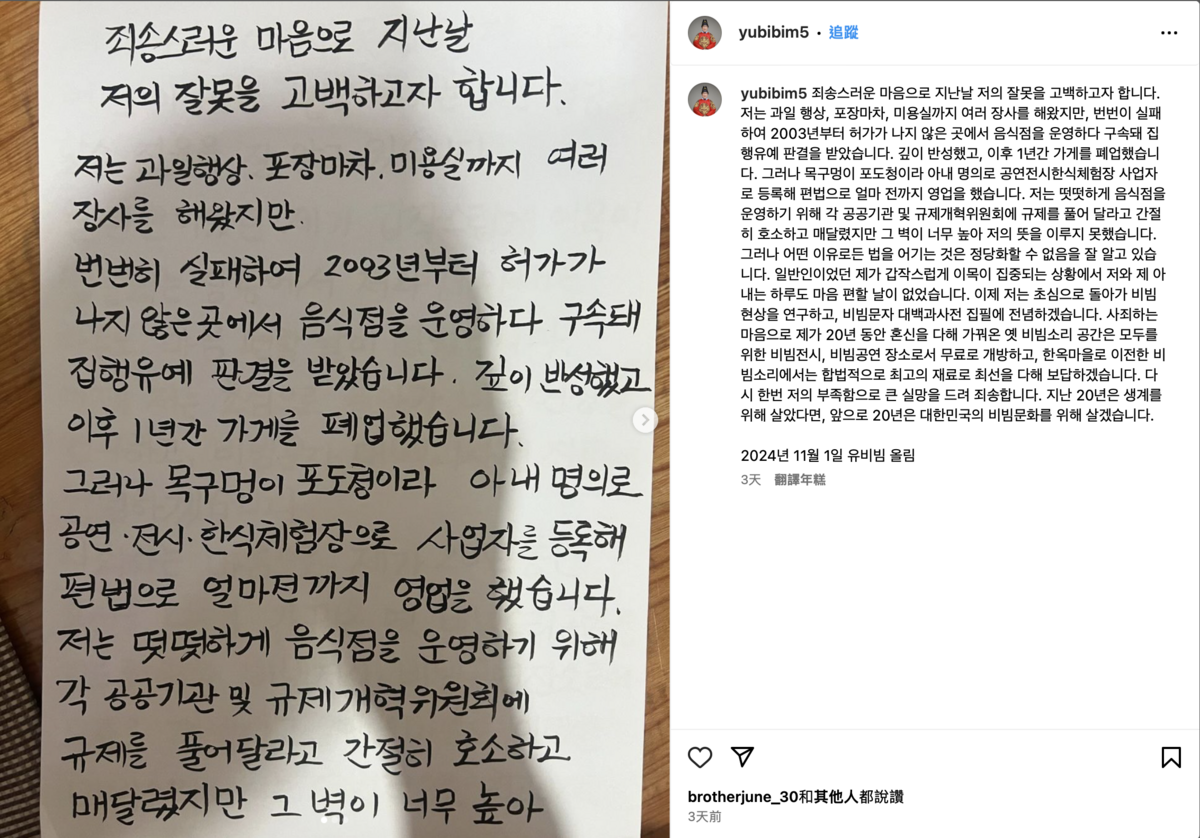 죄송스러운 마음으로 지난날
저의 잘못을 고백하고자 합니다.
저는 과일행상, 포장마차, 미용실까지 여러
장사를 해왔지만.
번번히 실패하여 2003년부터 허가가
나지 않은 곳에서 음식점을 운영하다 구속돼
집행유예 판결을 받았습니다. 깊이 반성했고
이후 1년간 가게를 폐업했습니다.
그러나 목구멍이 포도청이라 아내 명의로
공연·전시·한식체험장으로 사업자를 등록해
편법으로 얼마전까지 영업을 했습니다.
저는 떳떳하게 음식점을 운영하기 위해
각 공공기관 및 규제개혁위원회에
규제를 풀어달라고 간절히 호소하고
매달렸지만 그 벽이 너무 높아
yubibim5 · 追蹤
yubibim5 죄송스러운 마음으로 지난날 저의 잘못을 고백하고자 합니다.
저는 과일 행상, 포장마차, 미용실까지 여러 장사를 해왔지만, 번번이 실패
하여 2003년부터 허가가 나지 않은 곳에서 음식점을 운영하다 구속돼 집
행유예 판결을 받았습니다. 깊이 반성했고, 이후 1년간 가게를 폐업했습니
다. 그러나 목구멍이 포도청이라 아내 명의로 공연전시한식체험장 사업자
로 등록해 편법으로 얼마 전까지 영업을 했습니다. 저는 떳떳하게 음식점을
운영하기 위해 각 공공기관 및 규제개혁위원회에 규제를 풀어 달라고 간절
히 호소하고 매달렸지만 그 벽이 너무 높아 저의 뜻을 이루지 못했습니다.
그러나 어떤 이유로든 법을 어기는 것은 정당화할 수 없음을 잘 알고 있습
니다. 일반인이었던 제가 갑작스럽게 이목이 집중되는 상황에서 저와 제 아
내는 하루도 마음 편할 날이 없었습니다. 이제 저는 초심으로 돌아가 비빔
현상을 연구하고, 비빔문자 대백과사전 집필에 전념하겠습니다. 사죄하는
마음으로 제가 20년 동안 혼신을 다해 가꿔온 옛 비빔소리 공간은 모두를
위한 비빔전시, 비빔공연 장소로서 무료로 개방하고, 한옥마을로 이전한 비
빔소리에서는 합법적으로 최고의 재료로 최선을 다해 보답하겠습니다. 다
시 한번 저의 부족함으로 큰 실망을 드려 죄송합니다. 지난 20년은 생계를
위해 살았다면, 앞으로 20년은 대한민국의 비빔문화를 위해 살겠습니다.
2024년 11월 1일 유비빔 올림
3天 翻譯年糕
brotherjune_30和其他人都說讚
3天前